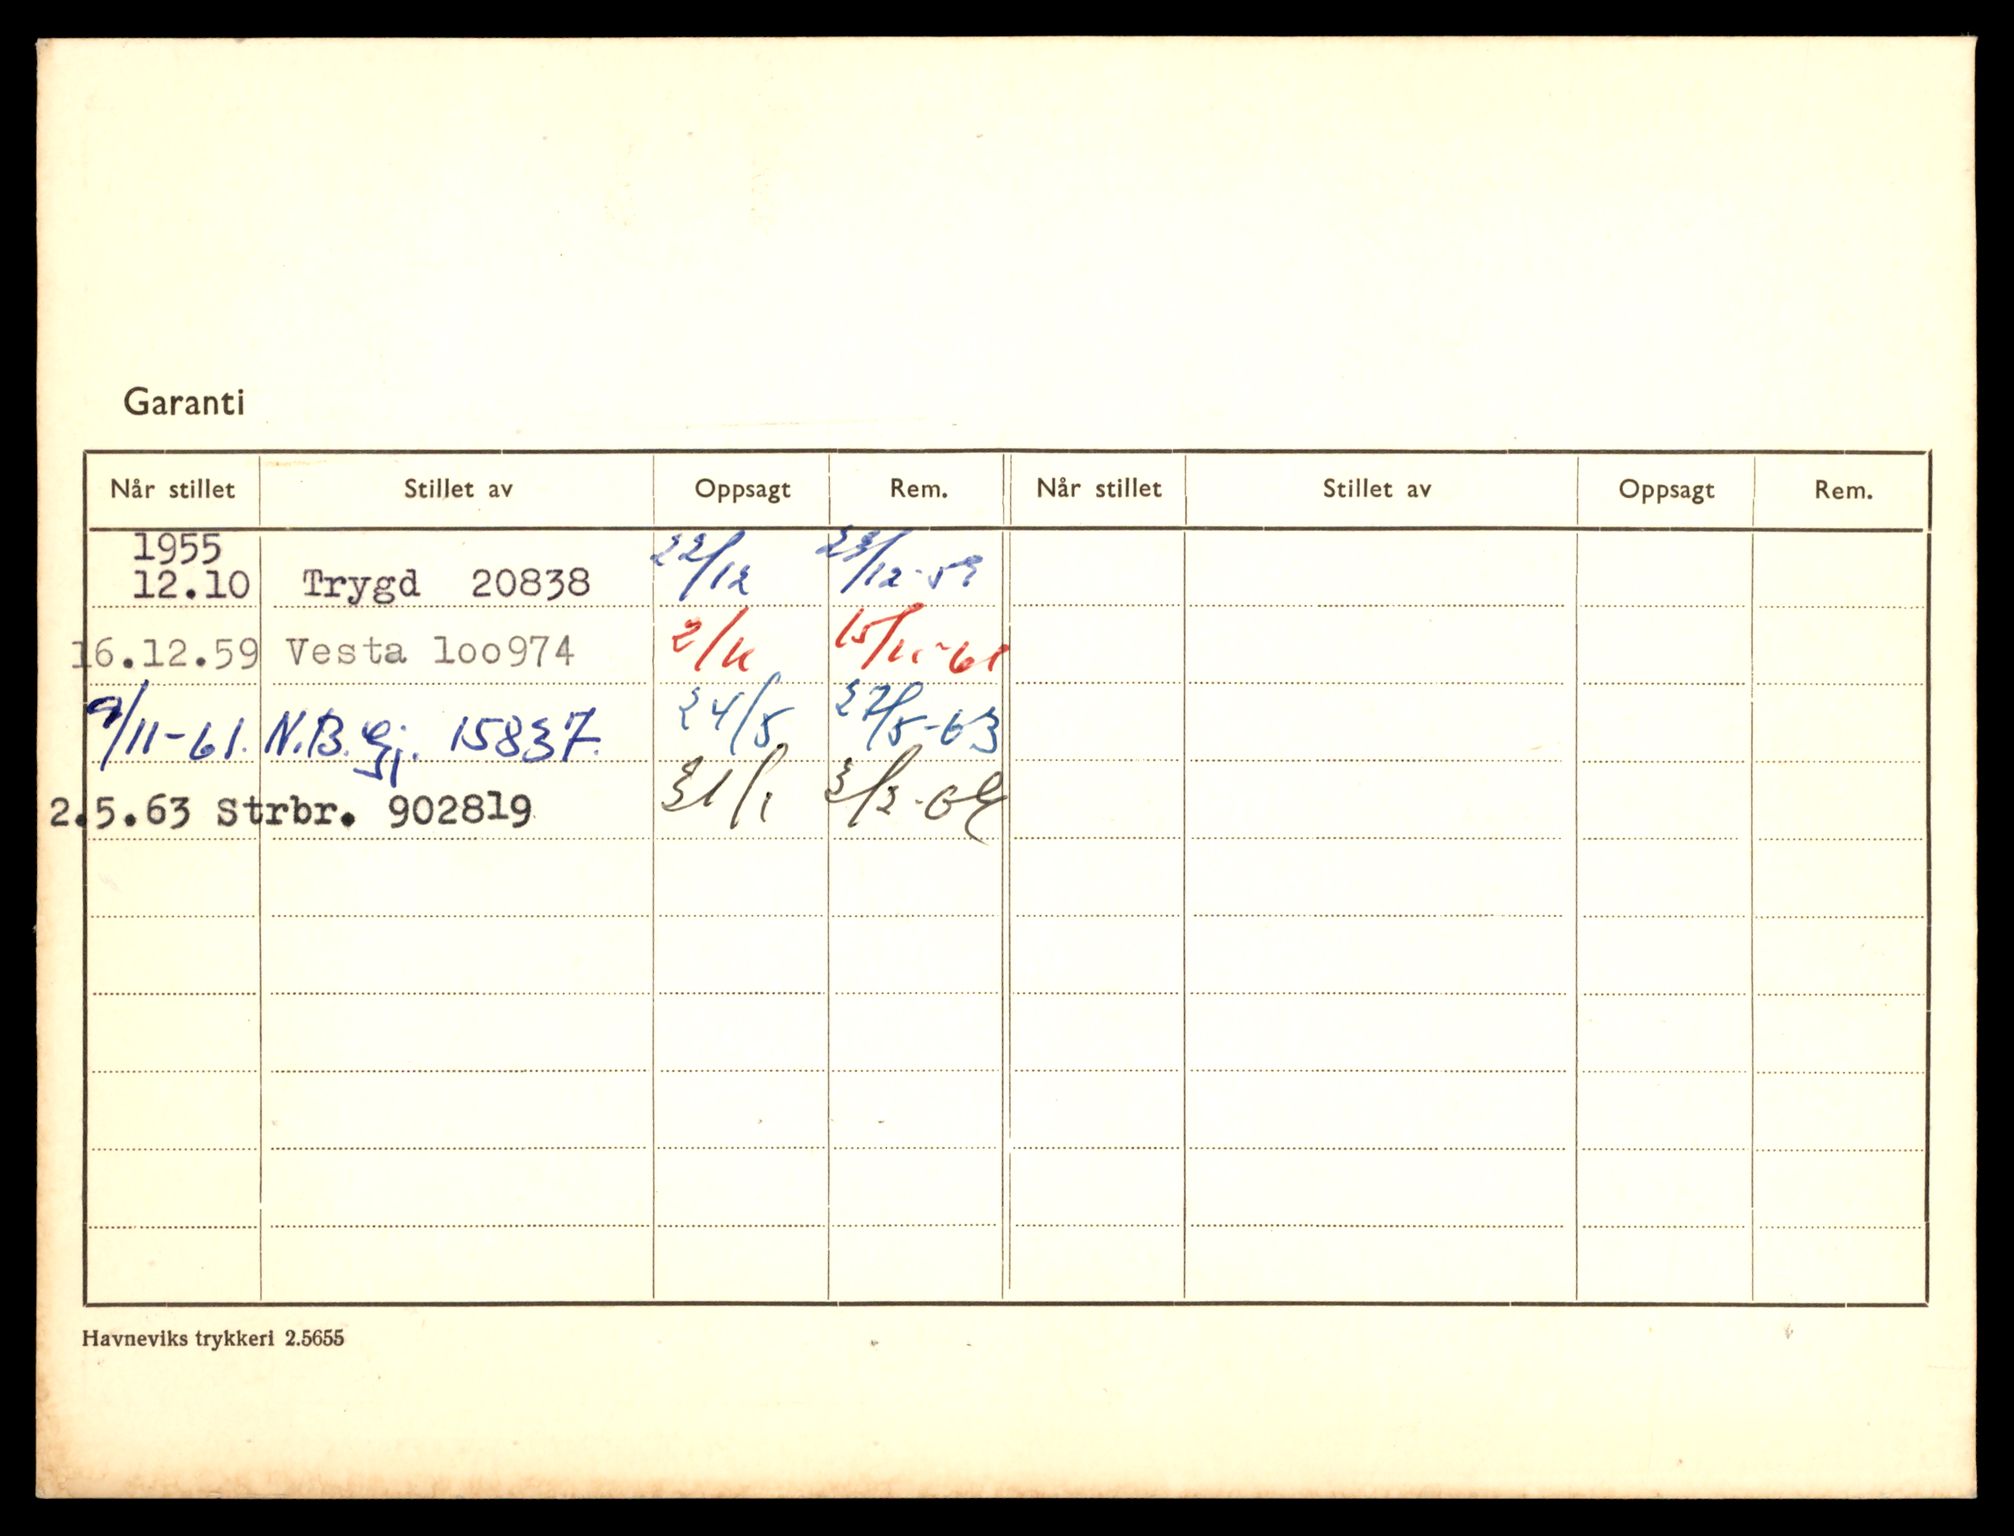 Garanti
Når stillet Stillet av Oppsagt Rem. Når stillet Stillet av Oppsagt Rem.
1955
12.10 Trygd 20838 22/12 23/12-59
16.12.59 Vesta loo974 2/11 15/11-61
9/11-61. N.B.Gj. 15837. 24/5 27/5-63
2.5.63 Strbr. 902819 31/1 3/2-64
Havneviks trykkeri 2.5655